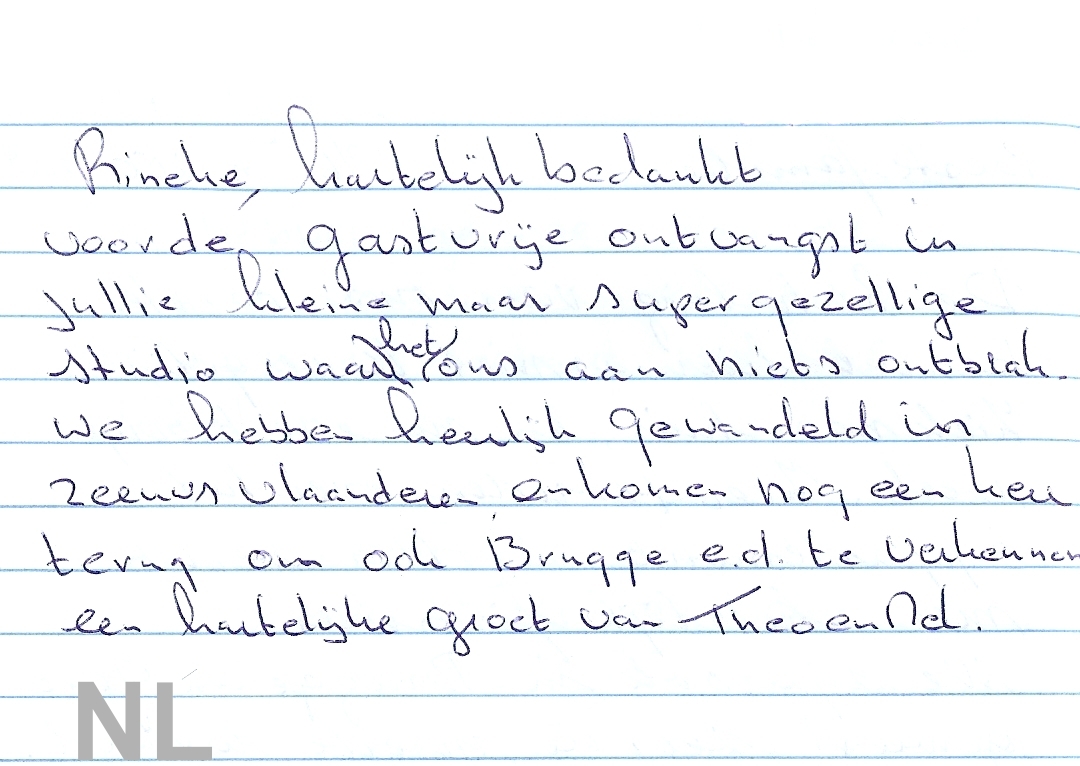 Rineke, hartelijk bedankt
voor de gastvrije ontvangst in
jullie kleine maar supergezellige
studio waar het ons aan niets ontbrak.
we hebben heerlijk gewandeld in
zeeuws vlaanderen en komen nog een keer
terug om ook Brugge e.d. te verkennen
een hartelijke groet van Theo en Ad.
NL